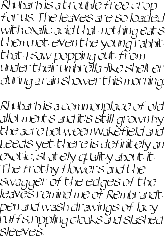 Rhubarb is a trouble free crop
for us. The leaves are so loaded
with oxalic acid that nothing eats
them not even the young rabbit
that I saw popping out from
under their umbrella-like shelter
during a rain shower this morning.
Rhubarb is a commonplace of old
allotments and it's still grown by
the acre between Wakefield and
Leeds yet there is definitely an
exotic, stately quality about it.
The frothy flowers and the
swagger of the edges of the
leaves remind me of Rembrandt
pen and wash drawings of lacy
ruffs, rippling cloaks and slashed
sleeves.